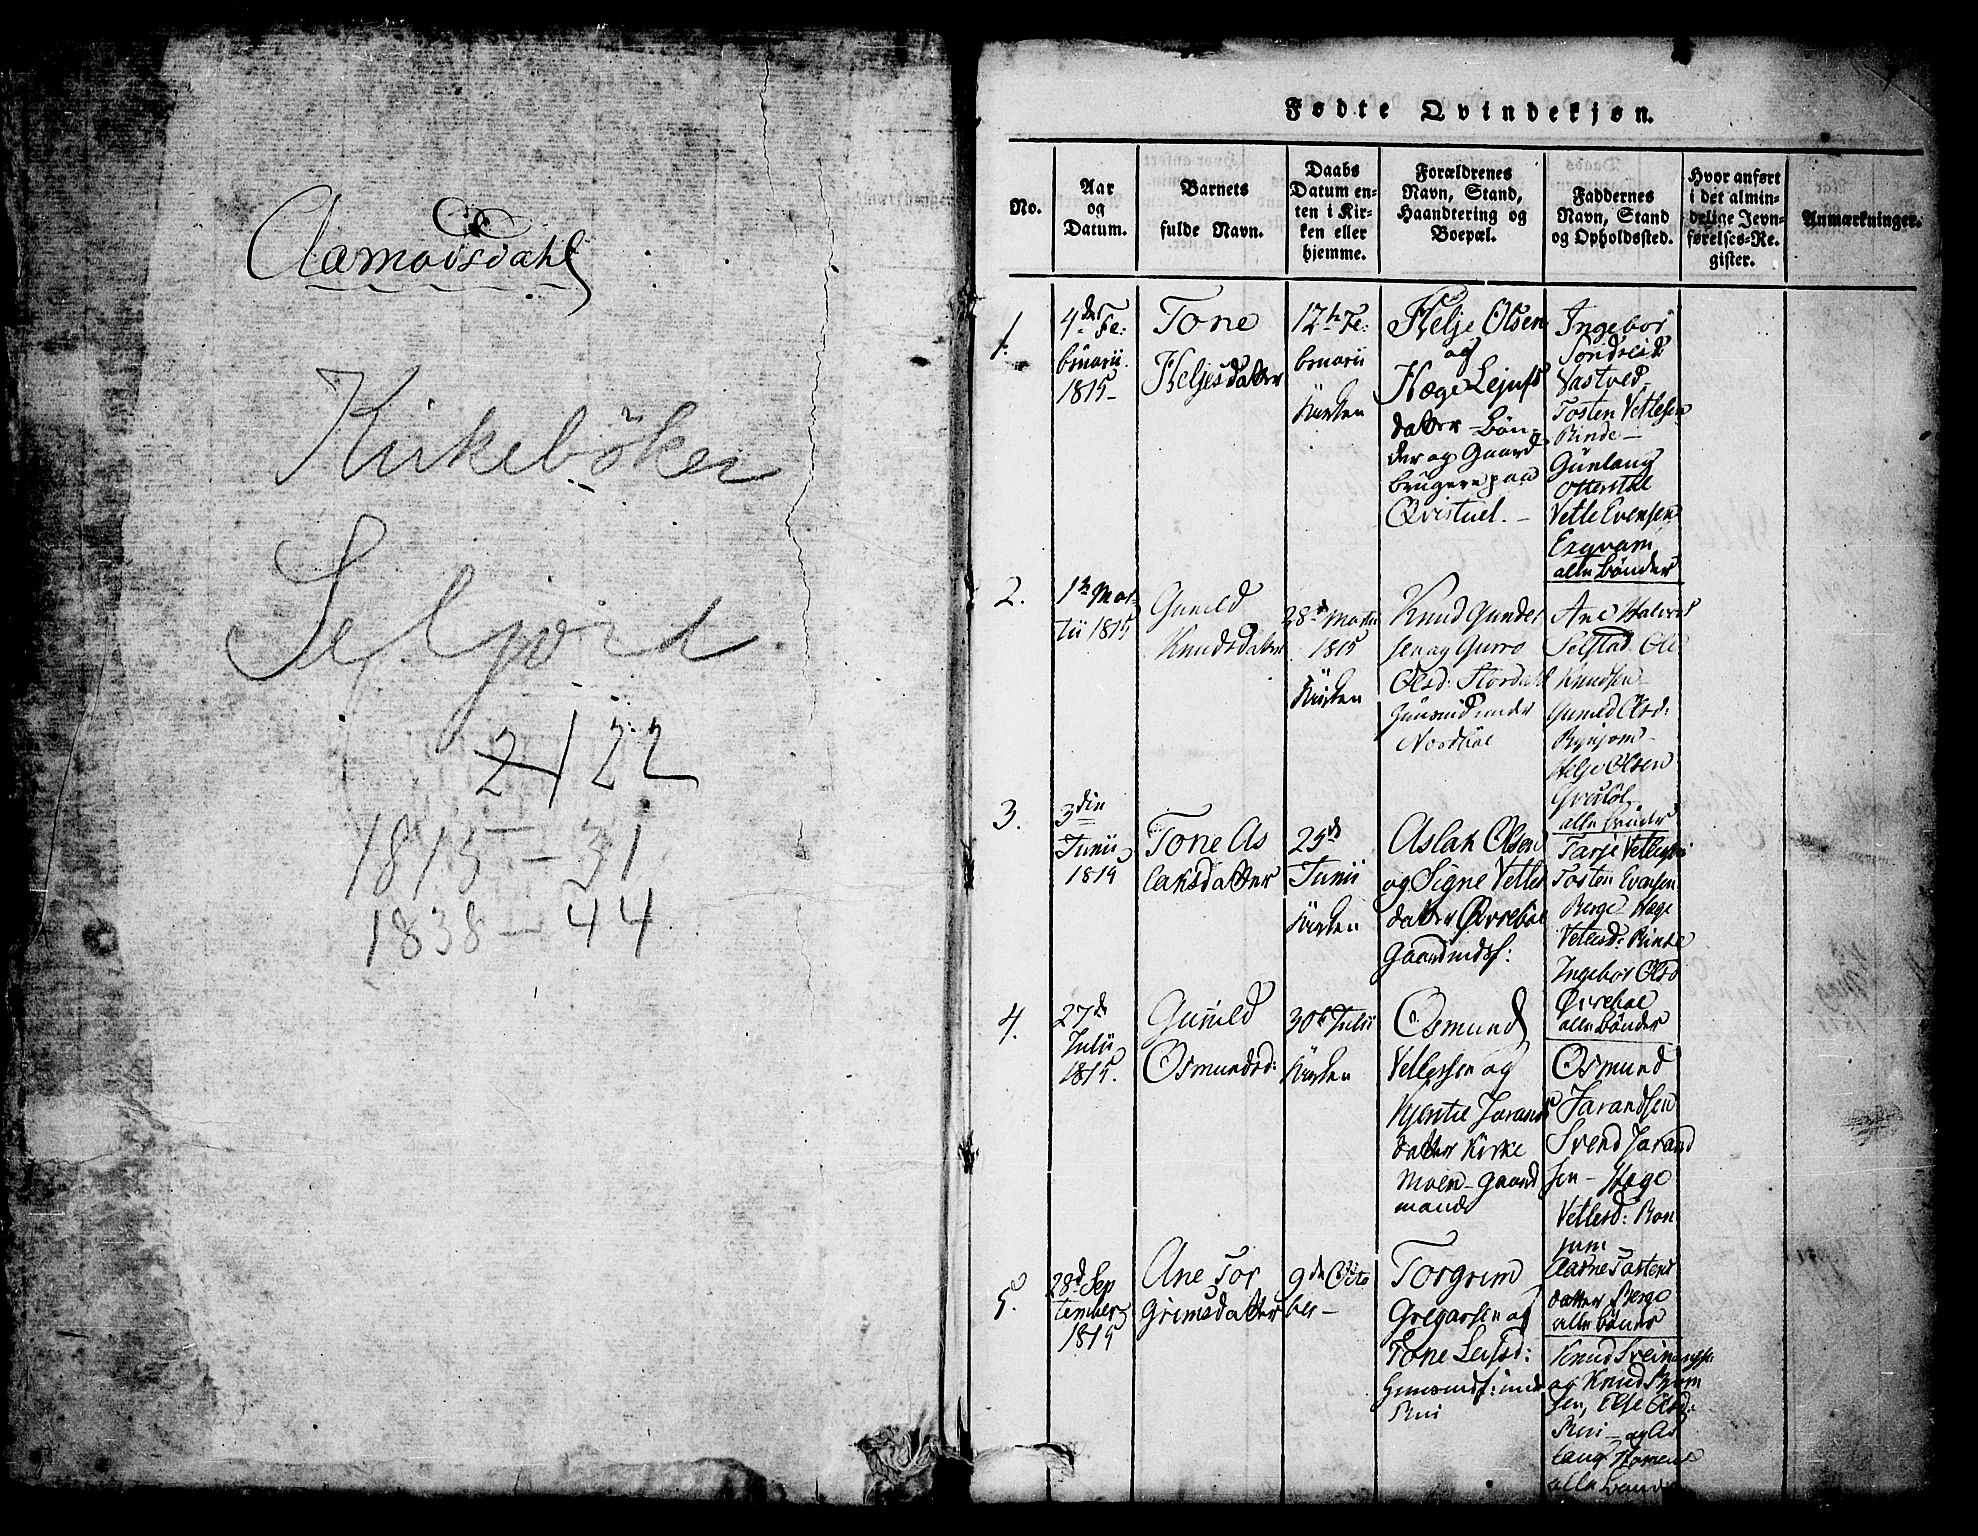 Aamodsdahl
Kirkebøker
Seljord
2/22
1815 - 31
1838 - 44
Fødte Qvindekjøn.
No.
Aar
og
Datum.
Barnets
fulde Navn.
Daabs
Datum en-
ten i Kir-
ken eller
hjemme.
Forældrenes
Navn, Stand,
Haandtering og
Boepæl.
Faddernes
Navn, Stand
og Opholdssted.
Hvor anført
i det almin-
delige Jevn-
førelses-Re-
gister.
Anmærkninger.
1.
4de Fe:
bruarii
1815-
Tone
Heljesdatter
12te Fe:
bruarii
Kirken
Helje Olsen
og
Hæge Lejufs
datter - Bøn-
der og Gaard
brugere paa
Qvistuel. -
Ingebor
Tondseid
Vastved-
Tosten Vetlesen
Rinde -
Gunlaug
Otterstul
Vetle Evensen
Exqvam
alle bønder
2.
1te Mar-
tii 1815
Guneld
Knudsdatter
28d Martii
1815
Kirken
Knud Gunder
sen og Gurro
Olsd: Stordahl
Huusmd under
Nordbøe
Ane Halvors
Selstad Ole
Knudsen
Guneld Olsd:
Bynjom-
Helje Olsen
Qvistøl,
alle bønder
3.
3die
Junii
1815
Tone As
laksdatter
25de
Junii
Kirken
Aslak Olsen
og Signe Vetles
datter Øvrebøe
Gaardmdsf:
Tarje Vetlesen
Tosten Evensen
Berge - Hæge
Vetlesd: Rinde
Ingebor Olsd
Øvrebøe
alle bønder
4.
27de
Julii
1815.
Guneld
Osmundsd:
30te Julii
Kirken
Osmund
Vetlessen og
Kjerstie Jarands
datter Kirke
Moen - Gaard
mands
Osmund
Jarandsen
Svend Jarand
sen - Hæge
Vetlesd: Bon
jum
Aasne Tostens
datter Berge
alle bøner
5.
28d Sep
tember
1815
Ane Tor
Grimsdatter
9de Octo
ber -
Torgrim
Gregarsen og
Tone Leifsd:
Huusmdsf: und
Rui
Knud Sveinungs
og Knud Bjørn
sen, Else Olsd:
Rui - og As
laug Homme
alle bønder